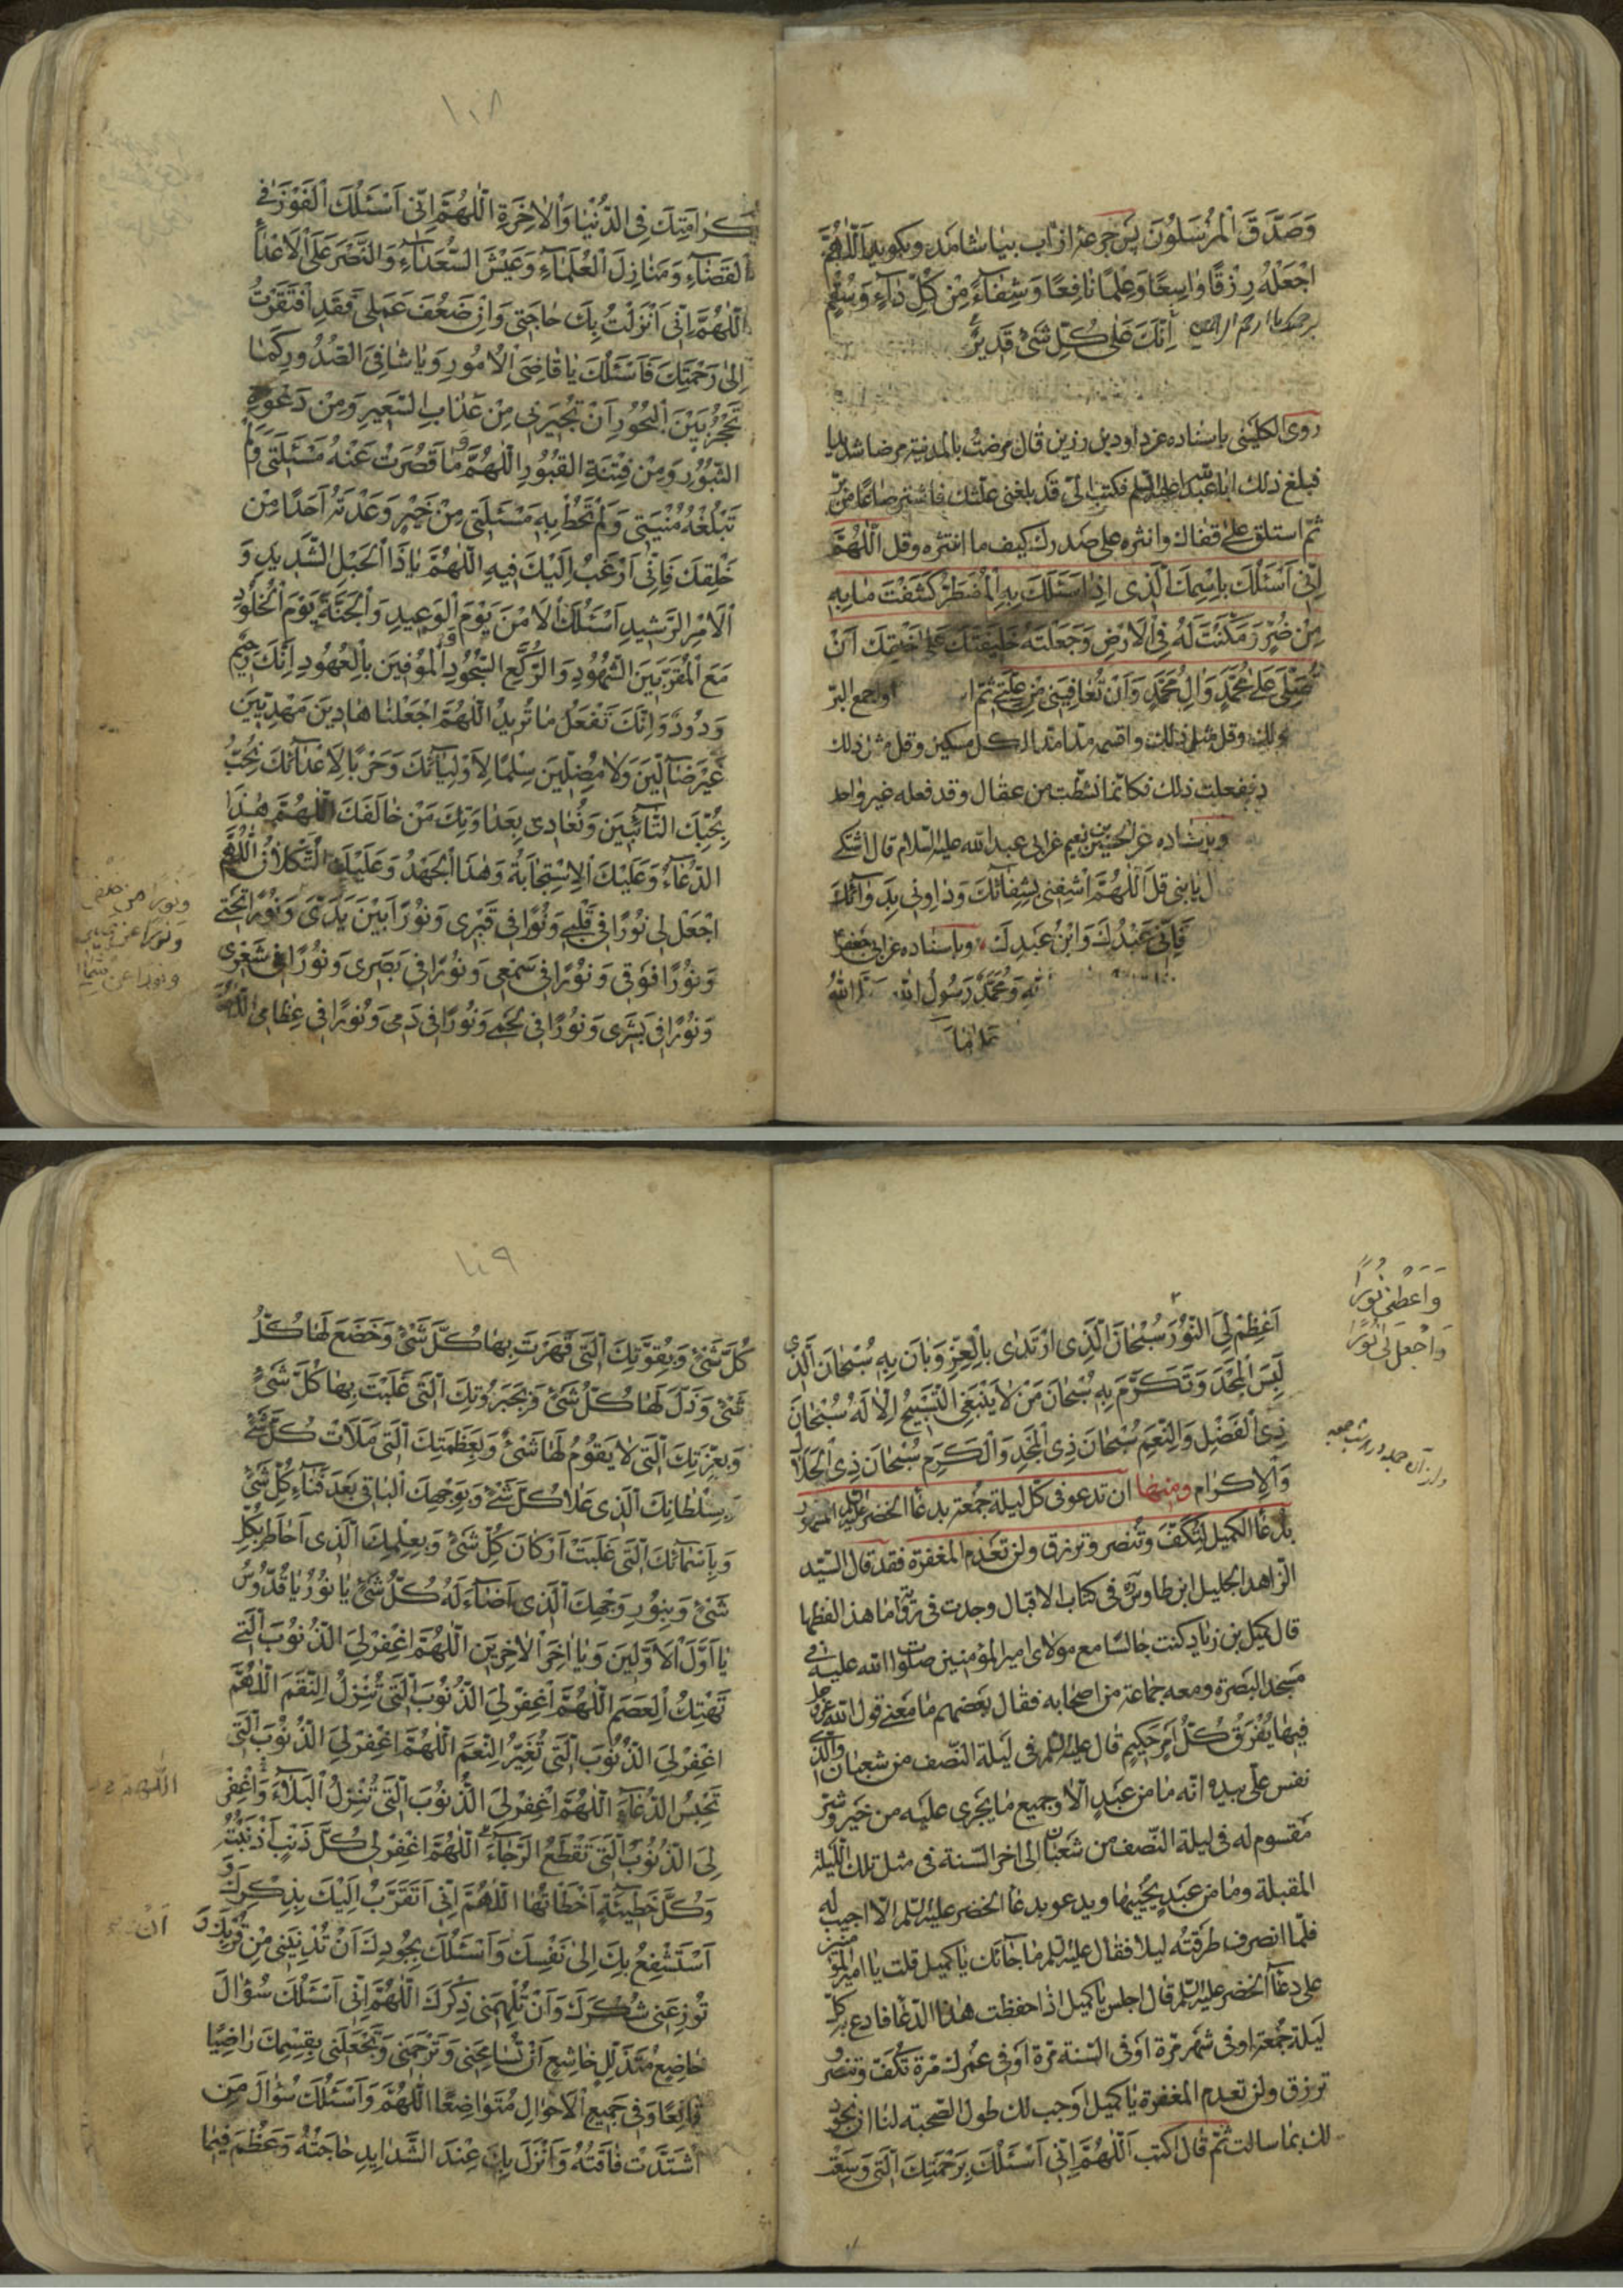 وَصَدَّقَ الْمُرْسَلُونَ پس جرعۀ از آب بیاشامد و بکوید اَللّٰهُمَّ
اجْعَلْهُ رِزْقًا وَاسِعًا وَعِلْمًا نَافِعًا وَشِفَاءً مِنْ كُلِّ دَاءٍ وَسُقْمٍ
اِنَّكَ عَلٰى كُلِّ شَیْءٍ قَدِیرٌ برحمتك یا ارحم الراحمین
روى الكلینى باسناده عن داود بن رزین قال مرضت بالمدینة مرضا شدیدا
فبلغ ذلك ابا عبد الله علیه السلم فكتب الىّ قد بلغنى علّتك فاشتر صاعًا من برّ
ثمّ استلق على قفاك وانثره على صدرك كیف ما انتثر وقل اَللّٰهُمَّ
اِنِّی اَسْئَلُكَ بِاسْمِكَ الَّذِی اِذَا سَئَلَكَ بِهِ الْمُضْطَرُّ كَشَفْتَ مَا بِهِ
مِنْ ضُرٍّ وَمَكَّنْتَ لَهُ فِی الْاَرْضِ وَجَعَلْتَهُ خَلِیفَتَكَ عَلٰى خَلْقِكَ اَنْ
تُصَلِّیَ عَلٰى مُحَمَّدٍ وَاٰلِ مُحَمَّدٍ وَاَنْ تُعَافِیَنِی مِنْ عِلَّتِی ثمّ واجمع البرّ
وقل مثل ذلك واقسمه مدّا مدّا لكل مسكین وقل مثل ذلك
ففعلت ذلك فكانّما نشطت من عقال وقد فعله غیر واحد
وباسناده عن الحسین بن نعیم عن ابى عبد الله علیه السلام قال اشتكى
یا بنى قل اَللّٰهُمَّ اشْفِنِی بِشِفَائِكَ وَدَاوِنِی بِدَوَائِكَ
فَاِنِّی عَبْدُكَ وَابْنُ عَبْدِكَ وباسناده عن ابى جعفر
وَمُحَمَّدٌ رَسُولُ اللهِ
١٠٨
كَرَامَتِكَ فِی الدُّنْیَا وَالْاٰخِرَةِ اَللّٰهُمَّ اِنِّی اَسْئَلُكَ الْفَوْزَ فِی
الْقَضَاءِ وَمَنَازِلَ الْعُلَمَاءِ وَعَیْشَ السُّعَدَاءِ وَالنَّصْرَ عَلَى الْاَعْدَاءِ
اَللّٰهُمَّ اِنِّی اَنْزَلْتُ بِكَ حَاجَتِی وَاِنْ ضَعُفَ عَمَلِی فَقَدِ افْتَقَرْتُ
اِلٰى رَحْمَتِكَ فَاَسْئَلُكَ یَا قَاضِیَ الْاُمُورِ وَیَا شَافِیَ الصُّدُورِ كَمَا
تُجِیرُ بَیْنَ الْبُحُورِ اَنْ تُجِیرَنِی مِنْ عَذَابِ السَّعِیرِ وَمِنْ دَعْوَةِ
الثُّبُورِ وَمِنْ فِتْنَةِ الْقُبُورِ اَللّٰهُمَّ مَا قَصُرَتْ عَنْهُ مَسْئَلَتِی وَلَمْ
تَبْلُغْهُ مُنْیَتِی وَلَمْ تُحِطْ بِهِ مَسْئَلَتِی مِنْ خَیْرٍ وَعَدْتَهُ اَحَدًا مِنْ
خَلْقِكَ فَاِنِّی اَرْغَبُ اِلَیْكَ فِیهِ اَللّٰهُمَّ یَا ذَا الْحَبْلِ الشَّدِیدِ وَ
الْاَمْرِ الرَّشِیدِ اَسْئَلُكَ الْاَمْنَ یَوْمَ الْوَعِیدِ وَالْجَنَّةَ یَوْمَ الْخُلُودِ
مَعَ الْمُقَرَّبِینَ الشُّهُودِ وَالرُّكَّعِ السُّجُودِ الْمُوفِینَ بِالْعُهُودِ اِنَّكَ رَحِیمٌ
وَدُودٌ وَاِنَّكَ تَفْعَلُ مَا تُرِیدُ اَللّٰهُمَّ اجْعَلْنَا هَادِینَ مَهْدِیِّینَ
غَیْرَ ضَالِّینَ وَلَا مُضِلِّینَ سِلْمًا لِاَوْلِیَائِكَ وَحَرْبًا لِاَعْدَائِكَ نُحِبُّ
بِحُبِّكَ التَّائِبِینَ وَنُعَادِی بِعَدَاوَتِكَ مَنْ خَالَفَكَ اَللّٰهُمَّ هٰذَا
الدُّعَاءُ وَعَلَیْكَ الْاِسْتِجَابَةُ وَهٰذَا الْجَهْدُ وَعَلَیْكَ التُّكْلَانُ اَللّٰهُمَّ
اجْعَلْ لِی نُورًا فِی قَلْبِی وَنُورًا فِی قَبْرِی وَنُورًا بَیْنَ یَدَیَّ وَنُورًا تَحْتِی
وَنُورًا فَوْقِی وَنُورًا فِی سَمْعِی وَنُورًا فِی بَصَرِی وَنُورًا فِی شَعْرِی
وَنُورًا فِی بَشَرِی وَنُورًا فِی لَحْمِی وَنُورًا فِی دَمِی وَنُورًا فِی عِظَامِی اَللّٰهُمَّ
وَنُورًا مِن خلفی
وَنُورًا عن یمینی
ونورا عن شمالی
اَعْظِمْ لِیَ النُّورَ سُبْحَانَ الَّذِی ارْتَدٰى بِالْعِزِّ وَبَانَ بِهِ سُبْحَانَ الَّذِی
لَبِسَ الْمَجْدَ وَتَكَرَّمَ بِهِ سُبْحَانَ مَنْ لَا یَنْبَغِی التَّسْبِیحُ اِلَّا لَهُ سُبْحَانَ
ذِی الْفَضْلِ وَالنِّعَمِ سُبْحَانَ ذِی الْمَجْدِ وَالْكَرَمِ سُبْحَانَ ذِی الْجَلَالِ
وَالْاِكْرَامِ ومنها ان تدعو فى كلّ لیلة جمعة بدعاء الخضر علیه السلام المشهور
بدعاء الكمیل لتكفّ وتنصر وترزق ولن تعدم المغفرة فقد قال السیّد
الزاهد الجلیل ابن طاوس ره فى كتاب الاقبال وجدت فى روایة ما هذا لفظها
قال كمیل بن زیاد كنت جالسا مع مولاى امیر المؤمنین صلوات الله علیه فى
مسجد البصرة ومعه جماعة من اصحابه فقال بعضهم ما معنى قول الله عزّ وجلّ
فِیهَا یُفْرَقُ كُلُّ اَمْرٍ حَكِیمٍ قال علیه السلم فى لیلة النّصف من شعبان والّذى
نفس علىّ بیده انّه ما من عبد الّا وجمیع ما یجرى علیه من خیر وشرّ
مقسوم له فى لیلة النّصف من شعبان الى اخر السّنة فى مثل تلك اللّیلة
المقبلة وما من عبد یحییها ویدعو بدعاء الخضر علیه السلم الّا اجیب له
فلمّا انصرف طرقته لیلا فقال علیه السلم ما جاء بك یا كمیل قلت یا امیر المؤمنین
دعاء الخضر علیه السلم قال اجلس یا كمیل اذا حفظت هذا الدّعاء فادع به كلّ
لیلة جمعة او فى شهر مرّة او فى السّنة مرّة او فى عمرك مرّة تكفّ وتنصر
وترزق ولن تعدم المغفرة یا كمیل اوجب لك طول الصّحبة لنا ان نجود
لك بما سالت ثمّ قال اكتب اَللّٰهُمَّ اِنِّی اَسْئَلُكَ بِرَحْمَتِكَ الَّتِی وَسِعَتْ
وَاَعْطِنِی نُورًا
وَاجْعَلْ لِی نُورًا
١٠٩
كُلَّ شَیْءٍ وَبِقُوَّتِكَ الَّتِی قَهَرْتَ بِهَا كُلَّ شَیْءٍ وَخَضَعَ لَهَا كُلُّ
شَیْءٍ وَذَلَّ لَهَا كُلُّ شَیْءٍ وَبِجَبَرُوتِكَ الَّتِی غَلَبْتَ بِهَا كُلَّ شَیْءٍ
وَبِعِزَّتِكَ الَّتِی لَا یَقُومُ لَهَا شَیْءٌ وَبِعَظَمَتِكَ الَّتِی مَلَاَتْ كُلَّ شَیْءٍ
وَبِسُلْطَانِكَ الَّذِی عَلَا كُلَّ شَیْءٍ وَبِوَجْهِكَ الْبَاقِی بَعْدَ فَنَاءِ كُلِّ شَیْءٍ
وَبِاَسْمَائِكَ الَّتِی غَلَبَتْ اَرْكَانَ كُلِّ شَیْءٍ وَبِعِلْمِكَ الَّذِی اَحَاطَ بِكُلِّ
شَیْءٍ وَبِنُورِ وَجْهِكَ الَّذِی اَضَاءَ لَهُ كُلُّ شَیْءٍ یَا نُورُ یَا قُدُّوسُ
یَا اَوَّلَ الْاَوَّلِینَ وَیَا اٰخِرَ الْاٰخِرِینَ اَللّٰهُمَّ اغْفِرْ لِیَ الذُّنُوبَ الَّتِی
تَهْتِكُ الْعِصَمَ اَللّٰهُمَّ اغْفِرْ لِیَ الذُّنُوبَ الَّتِی تُنْزِلُ النِّقَمَ اَللّٰهُمَّ
اغْفِرْ لِیَ الذُّنُوبَ الَّتِی تُغَیِّرُ النِّعَمَ اَللّٰهُمَّ اغْفِرْ لِیَ الذُّنُوبَ الَّتِی
تَحْبِسُ الدُّعَاءَ اَللّٰهُمَّ اغْفِرْ لِیَ الذُّنُوبَ الَّتِی تُنْزِلُ الْبَلَاءَ وَاغْفِرْ
لِیَ الذُّنُوبَ الَّتِی تَقْطَعُ الرَّجَاءَ اَللّٰهُمَّ اغْفِرْ لِی كُلَّ ذَنْبٍ اَذْنَبْتُهُ
وَكُلَّ خَطِیئَةٍ اَخْطَاْتُهَا اَللّٰهُمَّ اِنِّی اَتَقَرَّبُ اِلَیْكَ بِذِكْرِكَ وَ
اَسْتَشْفِعُ بِكَ اِلٰى نَفْسِكَ وَاَسْئَلُكَ بِجُودِكَ اَنْ تُدْنِیَنِی مِنْ قُرْبِكَ وَ
تُوزِعَنِی شُكْرَكَ وَاَنْ تُلْهِمَنِی ذِكْرَكَ اَللّٰهُمَّ اِنِّی اَسْئَلُكَ سُؤَالَ
خَاضِعٍ مُتَذَلِّلٍ خَاشِعٍ اَنْ تُسَامِحَنِی وَتَرْحَمَنِی وَتَجْعَلَنِی بِقِسْمِكَ رَاضِیًا
قَانِعًا وَفِی جَمِیعِ الْاَحْوَالِ مُتَوَاضِعًا اَللّٰهُمَّ وَاَسْئَلُكَ سُؤَالَ مَنِ
اشْتَدَّتْ فَاقَتُهُ وَاَنْزَلَ بِكَ عِنْدَ الشَّدَایِدِ حَاجَتَهُ وَعَظُمَ فِیمَا
اللّٰهُمَّ
اَنْ